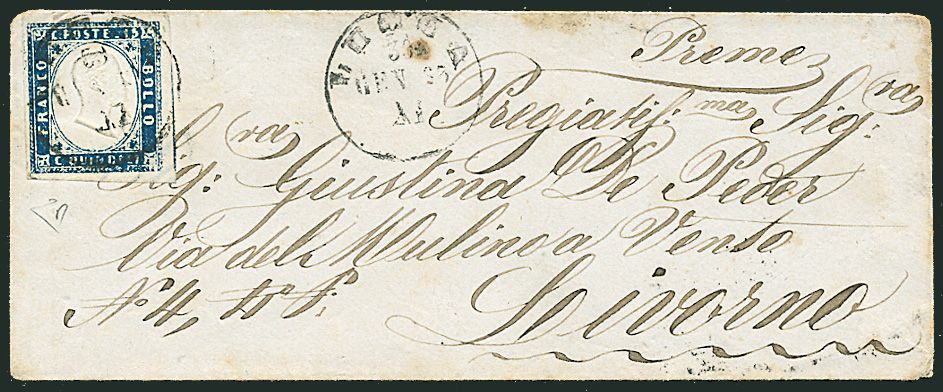 C. POSTE 15
FRANCO
BOLLO
C. QUINDICI
LUCCA
30
GEN 63
XI
Preme
Pregiatis: ma Sig: ra
Sig: ra Giustina De Peder
Via del Mulino a Vento
No. 4,
Livorno